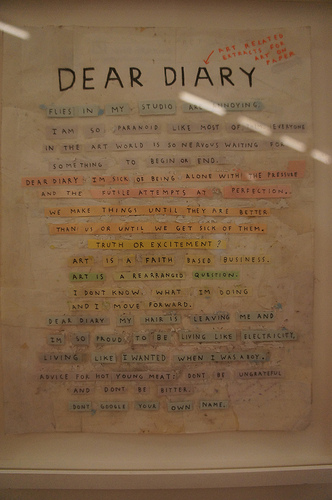 ART RELATED
EXTRACTS FOR
ART ON
PAPER
DEAR DIARY
FLIES IN MY STUDIO ARE ANNOYING.
I AM SO PARANOID LIKE MOST OF EVERYONE
IN THE ART WORLD IS SO NERVOUS WAITING FOR
SOMETHING TO BEGIN OR END.
DEAR DIARY I'M SICK OF BEING ALONE WITH THE PRESSURE
AND THE FUTILE ATTEMPTS AT PERFECTION.
WE MAKE THINGS UNTIL THEY ARE BETTER
THAN US OR UNTIL WE GET SICK OF THEM.
TRUTH OR EXCITEMENT?
ART IS A FAITH BASED BUSINESS.
ART IS A REARRANGED QUESTION.
I DON'T KNOW WHAT I'M DOING
AND I MOVE FORWARD.
DEAR DIARY MY HAIR IS LEAVING ME AND
I'M SO PROUD TO BE LIVING LIKE ELECTRICITY,
LIVING LIKE I WANTED WHEN I WAS A BOY.
ADVICE FOR HOT YOUNG MEAT: DON'T BE UNGRATEFUL
AND DON'T BE BITTER.
DON'T GOOGLE YOUR OWN NAME.